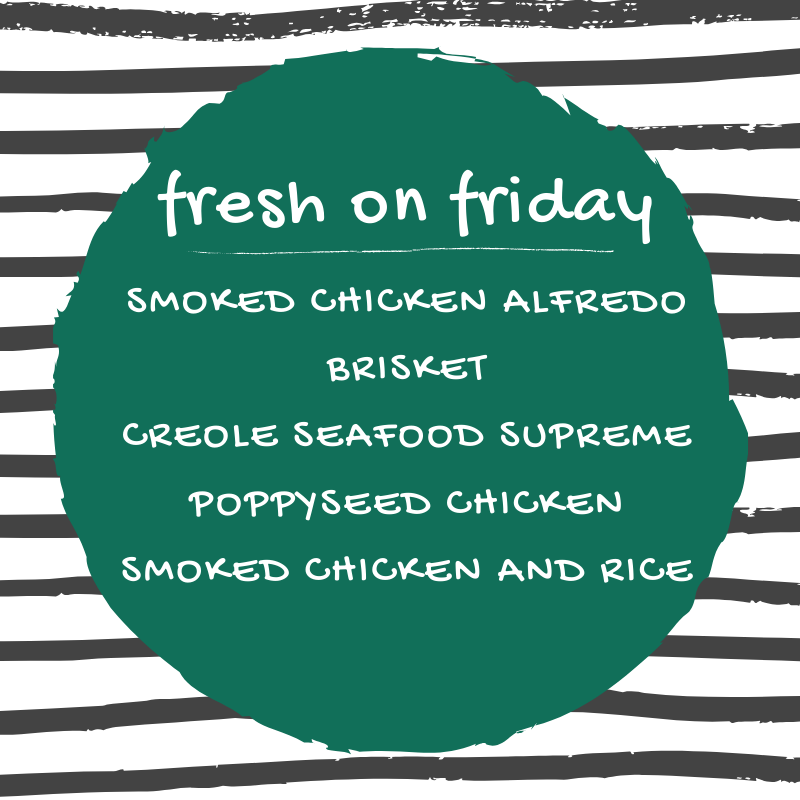 fresh on friday
SMOKED CHICKEN ALFREDO
BRISKET
CREOLE SEAFOOD SUPREME
POPPYSEED CHICKEN
SMOKED CHICKEN AND RICE